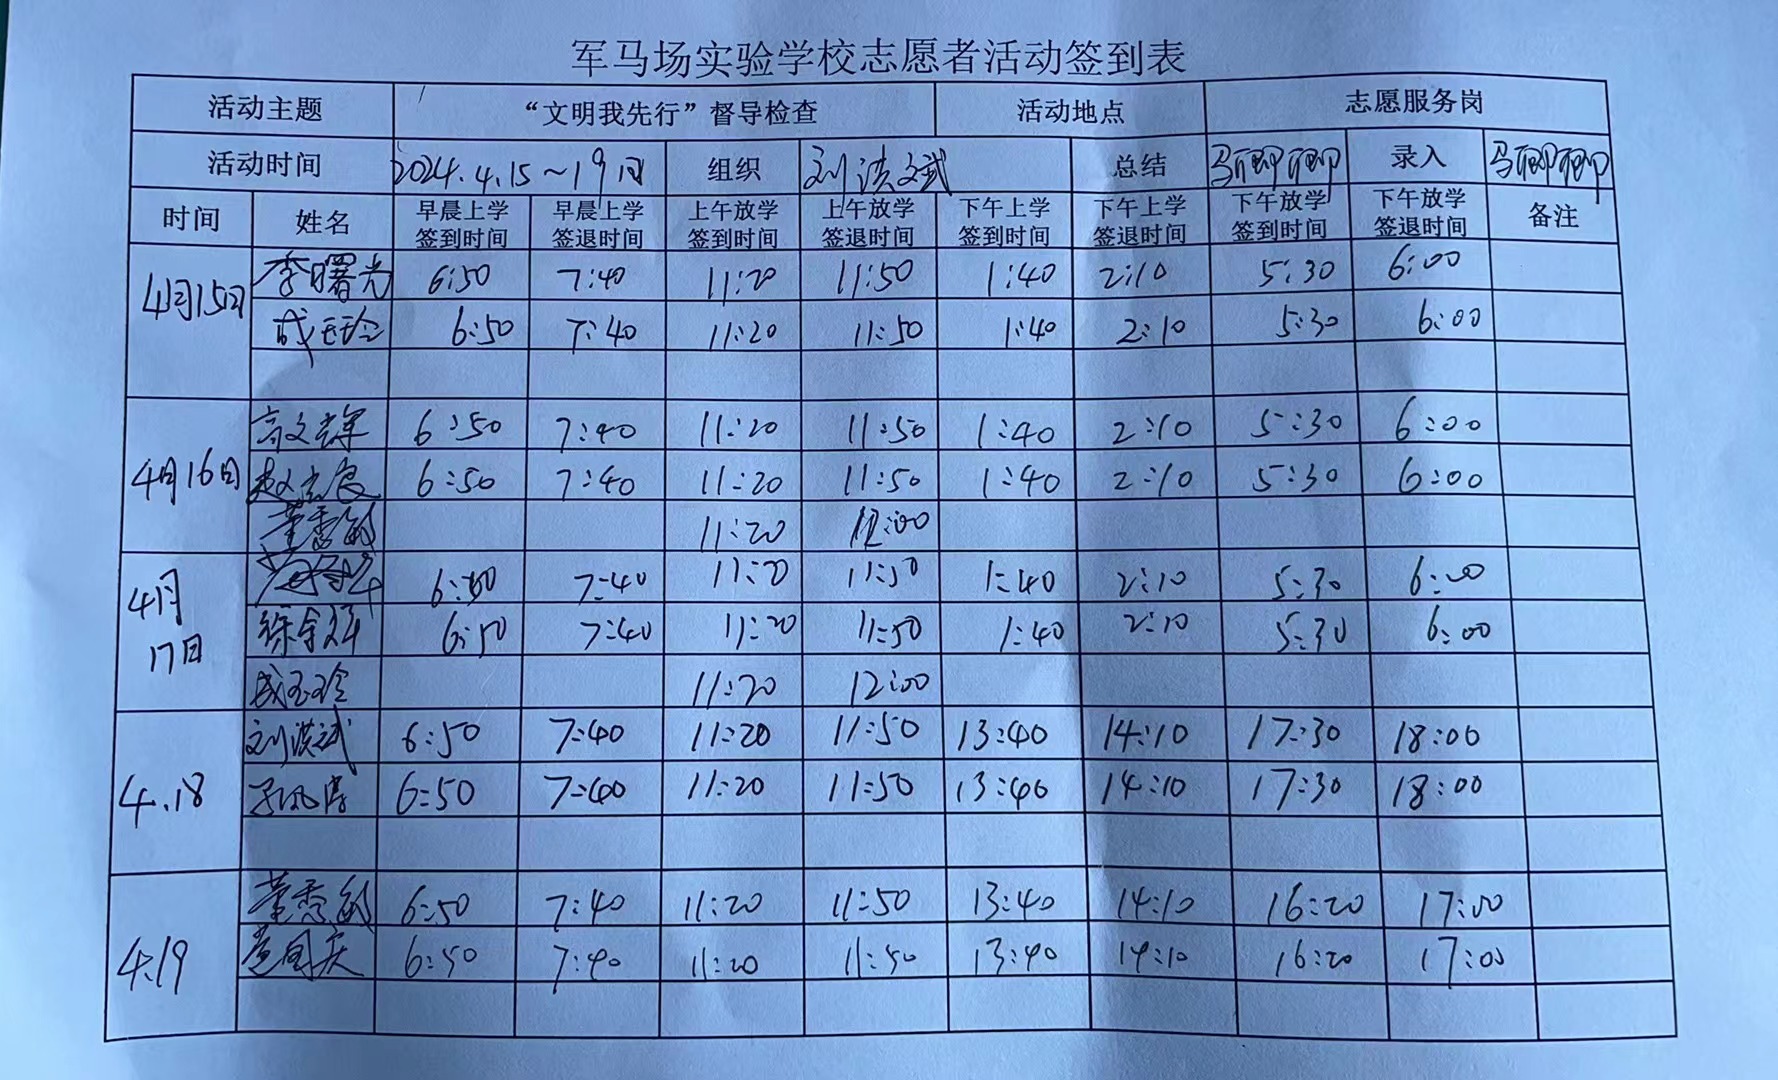 军马场实验学校志愿者活动签到表
活动主题 “文明我先行”督导检查 活动地点 志愿服务岗
活动时间 2024.4.15~19日 组织 刘洪斌 总结 马 录入 马
时间 姓名 早晨上学签到时间 早晨上学签退时间 上午放学签到时间 上午放学签退时间 下午上学签到时间 下午上学签退时间 下午放学签到时间 下午放学签退时间 备注
4月15日 李曙光 6:50 7:40 11:20 11:50 1:40 2:10 5:30 6:00
成玉玲 6:50 7:40 11:20 11:50 1:40 2:10 5:30 6:00
4月16日 高文军 6:50 7:40 11:20 11:50 1:40 2:10 5:30 6:00
赵志良 6:50 7:40 11:20 11:50 1:40 2:10 5:30 6:00
董秀敏 11:20 12:00
4月17日 6:50 7:40 11:20 11:50 1:40 2:10 5:30 6:00
徐 6:50 7:40 11:20 11:50 1:40 2:10 5:30 6:00
成玉玲 11:20 12:00
4.18 刘洪斌 6:50 7:40 11:20 11:50 13:40 14:10 17:30 18:00
6:50 7:40 11:20 11:50 13:40 14:10 17:30 18:00
4.19 董秀敏 6:50 7:40 11:20 11:50 13:40 14:10 16:20 17:00
国庆 6:50 7:40 11:20 11:50 13:40 14:10 16:20 17:00